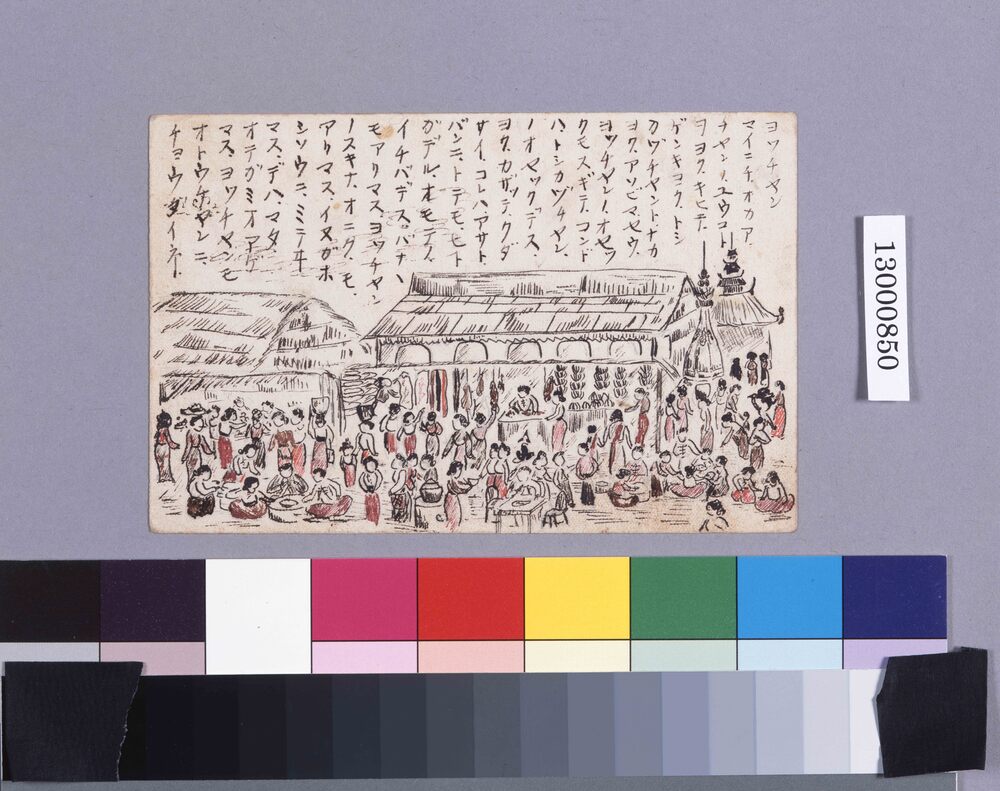 ヨツチヤン
マイニチオカア
チヤンノユウコト
ヲヨクキヒテ、
ゲンキヨクトシ
カヅチヤントナカ
ヨク、アソビマセウ、
ヨツチヤンノオセツ
クモスギテ、コンド
ハ、トシカヅチヤン、
ノオセツクデス、
ヨク、カザツテ、クダ
サイ、コレハ、アサト、
バンニ、トテモ、ヒト
ガデル、オモテノ、
イチバデス、バナナ
モアリマス、ヨツチヤン
ノスキナ、オニク、モ、
アリマス、イヌガホ
シソウニ、ミテヰ
マス、デハ、マタ、
オテガミオアゲ
マス、ヨツチヤンモ
オトウチヤンニ、
チヨウダイネー
13000850